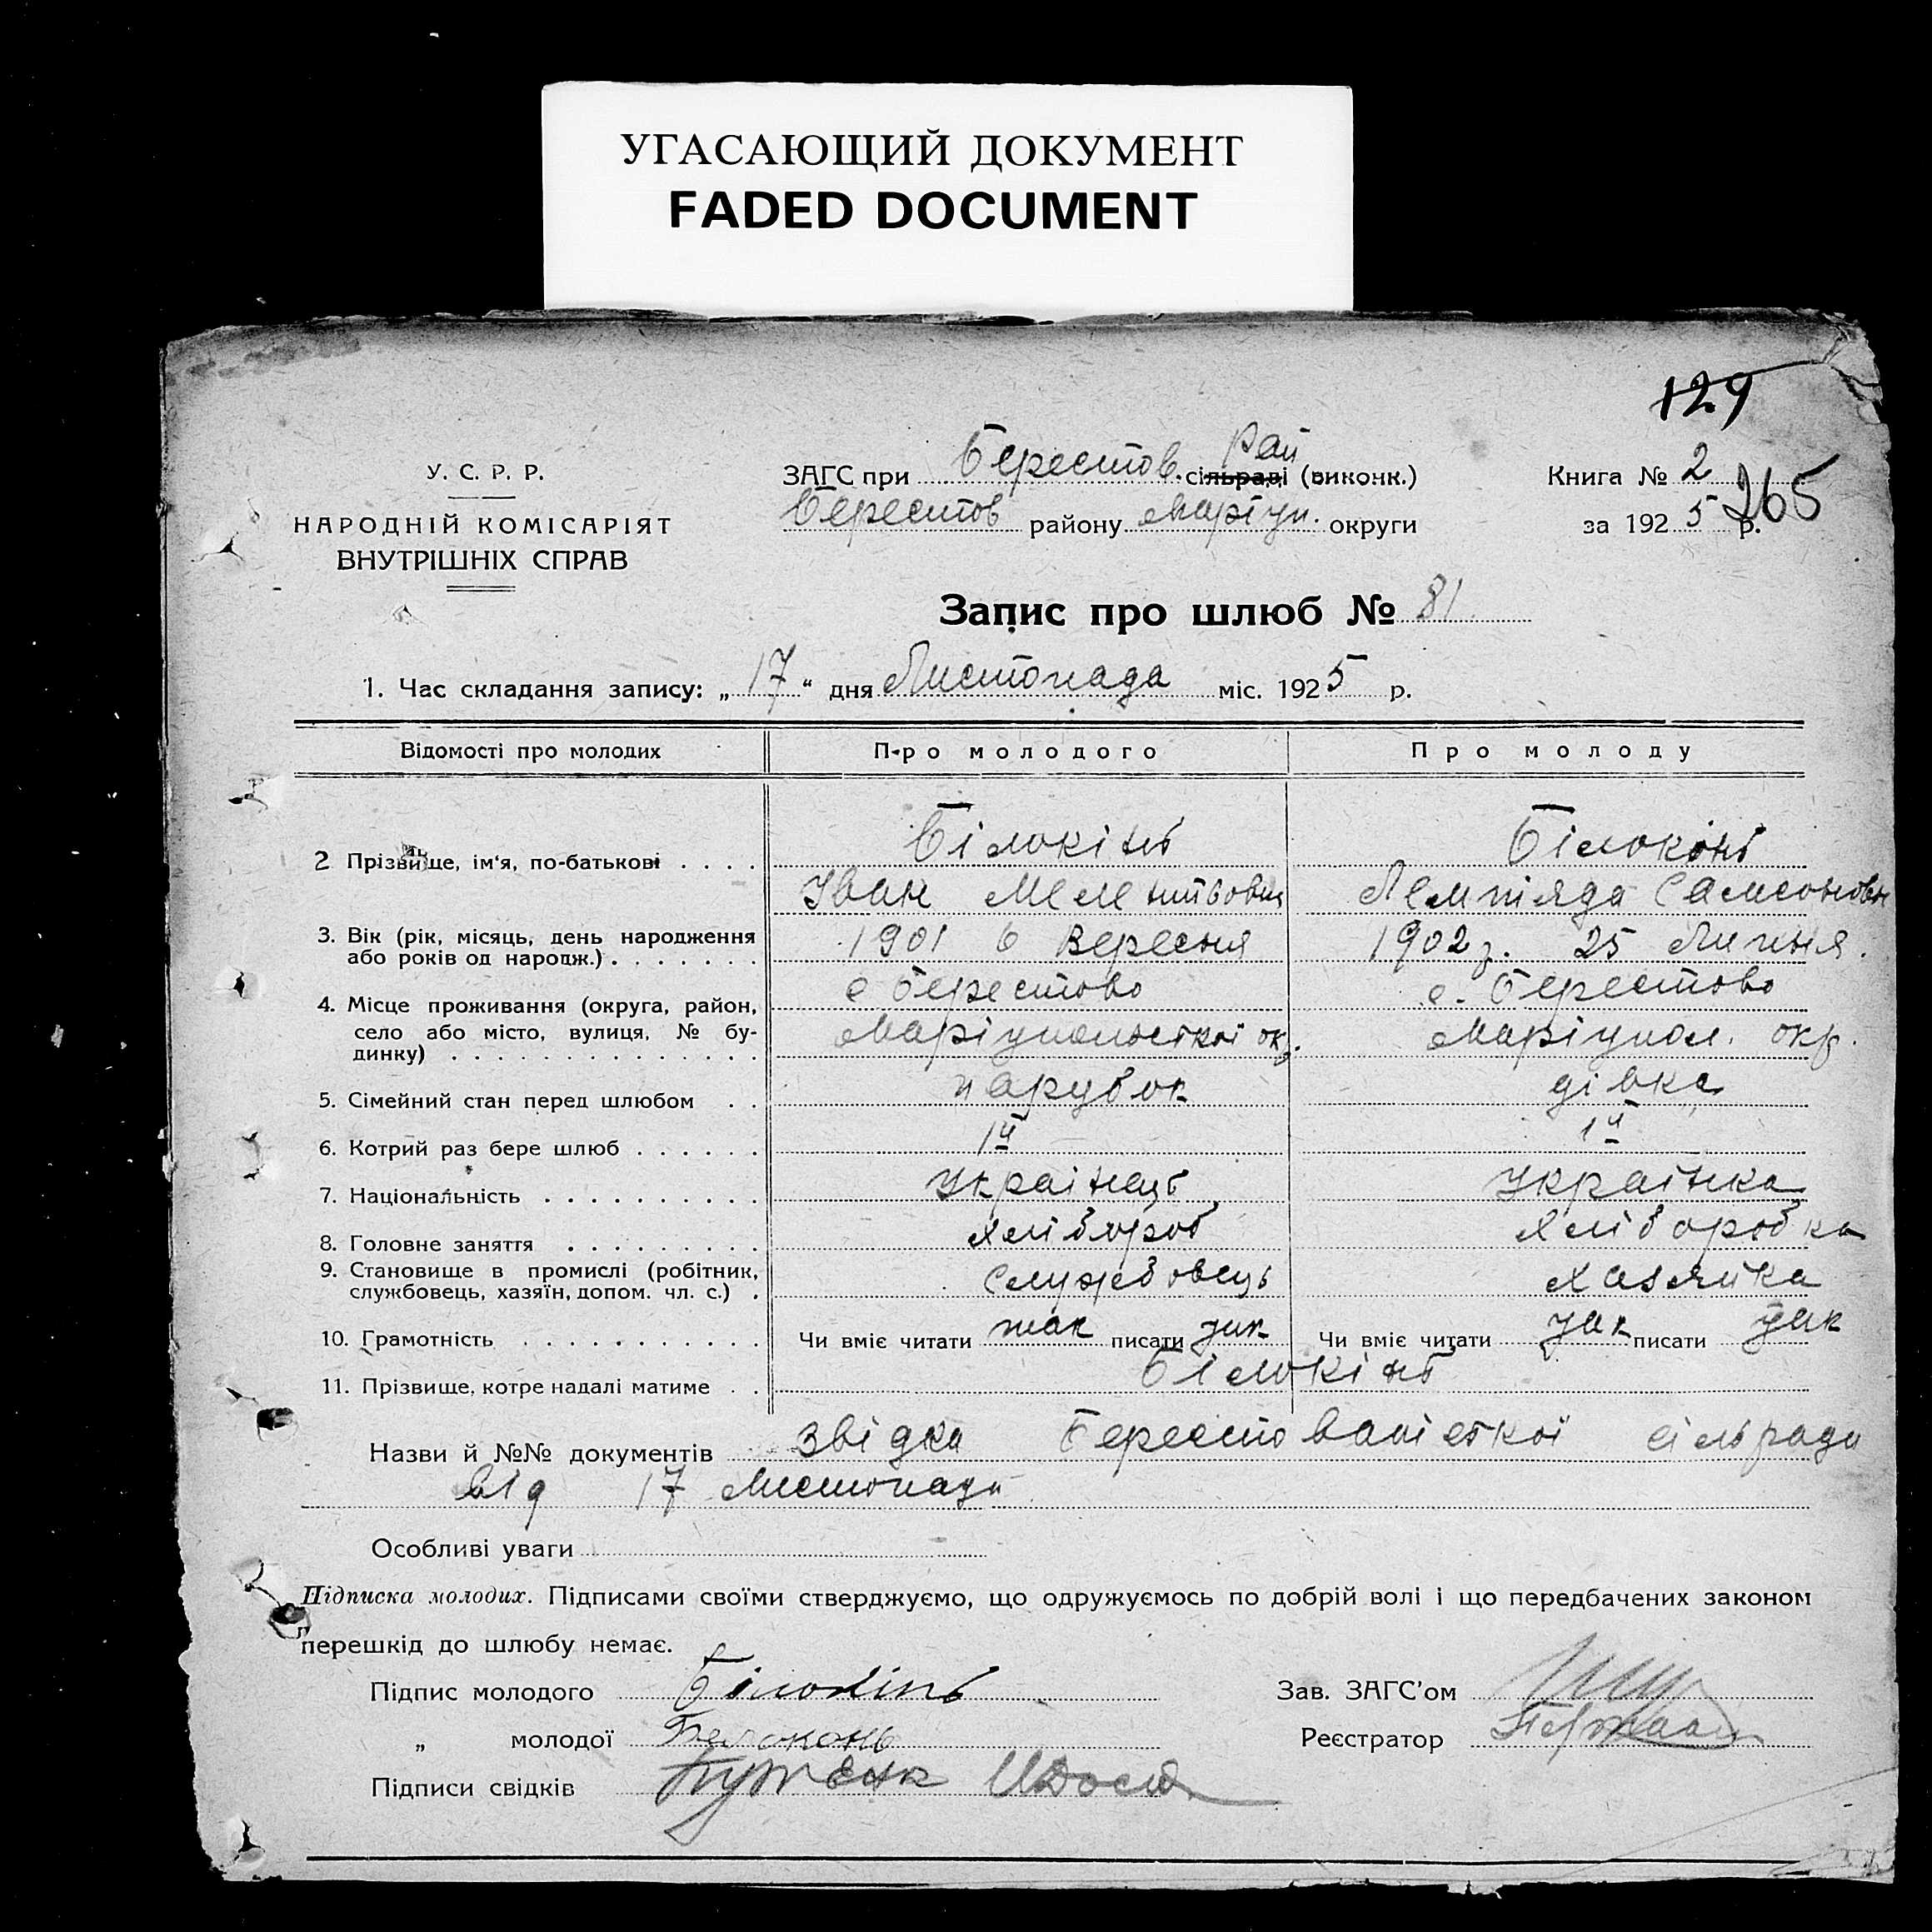 УГАСАЮЩИЙ ДОКУМЕНТ
FADED DOCUMENT
129
У. С. Р. Р.
НАРОДНІЙ КОМІСАРІЯТ
ВНУТРІШНІХ СПРАВ
ЗАГС при Берестов. Рай сільраді (виконк.)
Берестов району Маріуп. округи
Книга № 2
265
за 1925 р.
Запис про шлюб № 81
1. Час складання запису: „17“ дня Листопада міс. 1925 р.
Відомості про молодих
Про молодого
Про молоду
2 Прізвище, ім'я, по-батькові
Білокінь
Іван
Білоконь
Самсоновн
3. Вік (рік, місяць, день народження
або років од народж.)
1901 6 Вересня
1902 р. 25 Липня.
4. Місце проживання (округа, район,
село або місто, вулиця, № бу-
динку)
с Берестово
Маріупольської окр.
с. Берестово
Маріупол. окр.
5. Сімейний стан перед шлюбом
парубок
дівка
6. Котрий раз бере шлюб
1й
1й
7. Національність
Українець
Українка
8. Головне заняття
Хлібороб
Хліборобка
9. Становище в промислі (робітник,
службовець, хазяїн, допом. чл. с.)
Службовець
Хазяйка
10. Грамотність
Чи вміє читати так писати так
Чи вміє читати так писати так
11. Прізвище, котре надалі матиме
Білокінь
Назви й №№ документів звідка сільради
від 17 Листопада
Особливі уваги
Підписка молодих. Підписами своїми стверджуємо, що одружуємось по добрій волі і що передбачених законом
перешкід до шлюбу немає.
Підпис молодого Білокінь
„ молодої Белоконь
Підписи свідків
Зав. ЗАГС'ом
Реєстратор